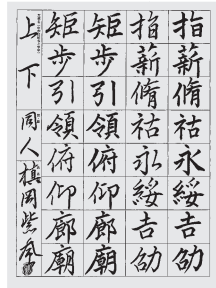 指薪脩祜永綏吉劭
指薪脩祜永綏吉劭
矩步引領俯仰廊廟
矩步引領俯仰廊廟
上下 同人棋罔紫